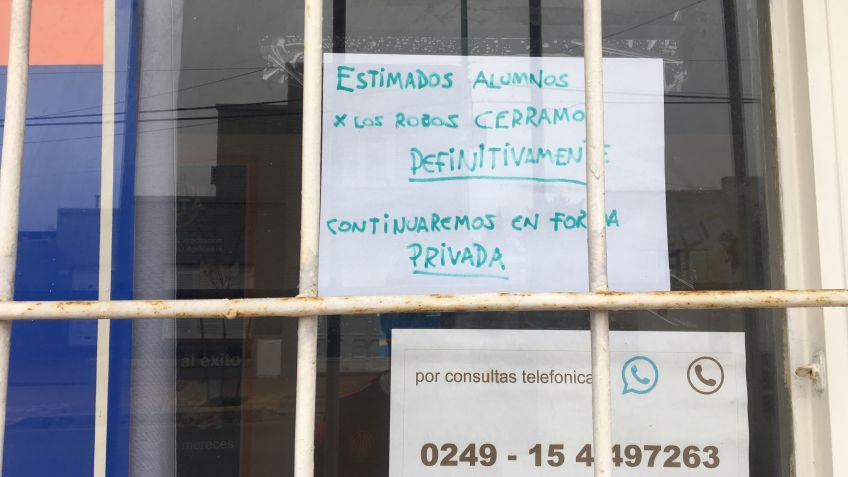 ESTIMADOS ALUMNOS
X LOS ROBOS CERRAMO
DEFINITIVAMENTE
CONTINUAREMOS EN FORMA
PRIVADA
al éxito
mereces
por consultas telefonica
0249 - 15 4 497263